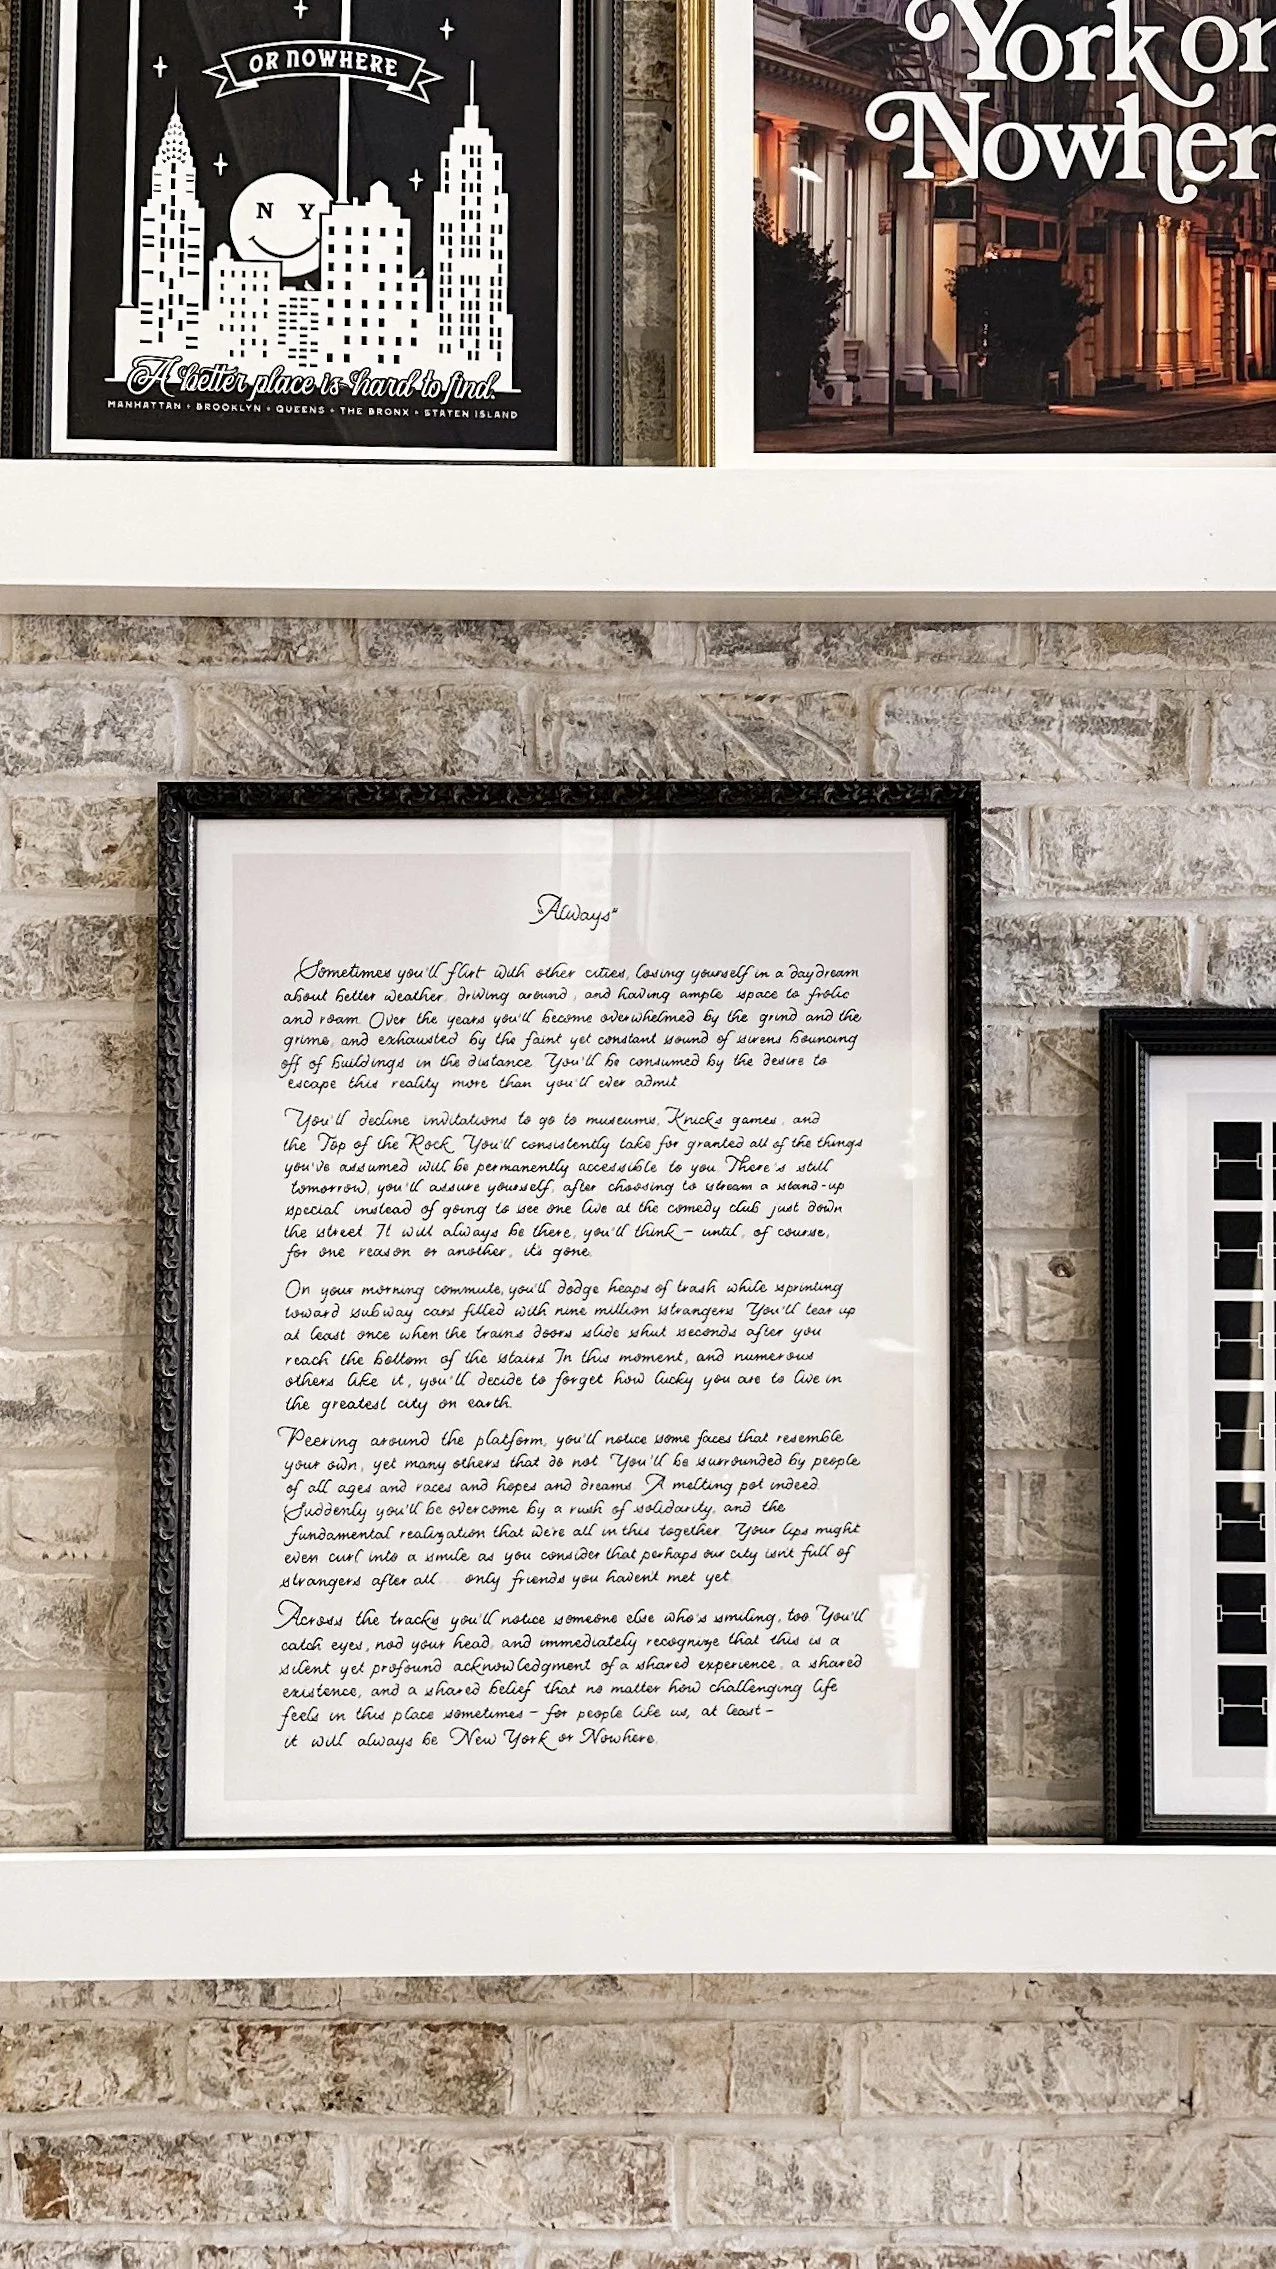 OR NOWHERE
N Y
A better place is hard to find.
MANHATTAN + BROOKLYN + QUEENS + THE BRONX + STATEN ISLAND
York or
Nowhere
"Always"
Sometimes you'll flirt with other cities, losing yourself in a daydream
about better weather, driving around, and having ample space to frolic
and roam. Over the years you'll become overwhelmed by the grind and the
grime, and exhausted by the faint yet constant sound of sirens bouncing
off of buildings in the distance. You'll be consumed by the desire to
escape this reality more than you'll ever admit.
You'll decline invitations to go to museums, Knicks games, and
the Top of the Rock. You'll consistently take for granted all of the things
you've assumed will be permanently accessible to you. There's still
tomorrow, you'll assure yourself, after choosing to stream a stand-up
special instead of going to see one live at the comedy club just down
the street. It will always be there, you'll think – until, of course,
for one reason or another, it's gone.
On your morning commute, you'll dodge heaps of trash while sprinting
toward subway cars filled with nine million strangers. You'll tear up
at least once when the trains doors slide shut seconds after you
reach the bottom of the stairs. In this moment, and numerous
others like it, you'll decide to forget how lucky you are to live in
the greatest city on earth.
Peering around the platform, you'll notice some faces that resemble
your own, yet many others that do not. You'll be surrounded by people
of all ages and races and hopes and dreams. A melting pot indeed.
Suddenly you'll be overcome by a rush of solidarity, and the
fundamental realization that we're all in this together. Your lips might
even curl into a smile as you consider that perhaps our city isn't full of
strangers after all... only friends you haven't met yet.
Across the tracks you'll notice someone else who's smiling, too. You'll
catch eyes, nod your head, and immediately recognize that this is a
silent yet profound acknowledgment of a shared experience, a shared
existence, and a shared belief that no matter how challenging life
feels in this place sometimes – for people like us, at least –
it will always be New York or Nowhere.